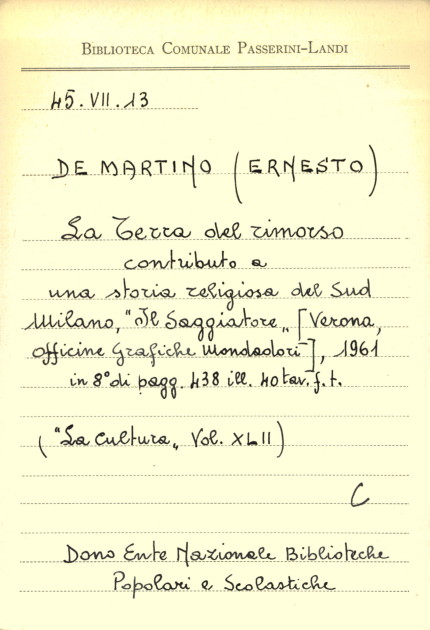 BIBLIOTECA COMUNALE PASSERINI-LANDI
45.VII.13
DE MARTINO (ERNESTO)
La Terra del rimorso
contributo a
una storia religiosa del Sud
Milano, "Il Saggiatore„ [Verona,
Officine Grafiche Mondadori], 1961
in 8° di pagg. 438 ill. 40 tav. f. t.
("La cultura„ Vol. XLII)
C
Dono Ente Nazionale Biblioteche
Popolari e Scolastiche